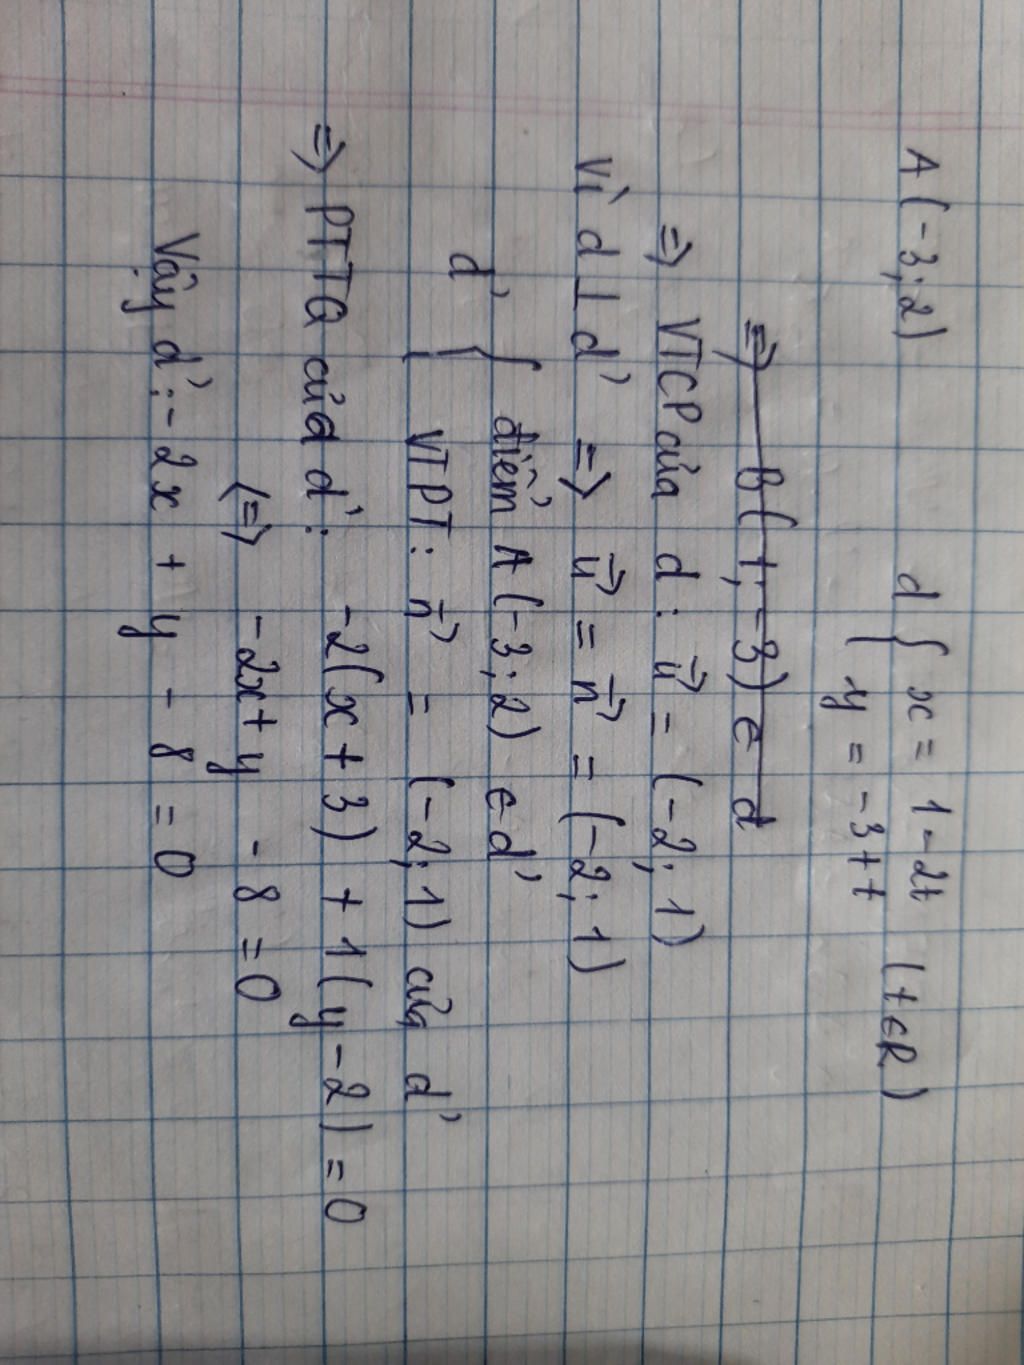 A(-3;2) d { x = 1-2t (t∈R)
y = -3+t
=> B(1;-3) ∈ d
=> VTCP của d: u⃗ = (-2;1)
Vì d ⊥ d' => u⃗ = n⃗' = (-2;1)
d' { điểm A(-3;2) ∈ d'
VTPT: n⃗' = (-2;1) của d'
=> PTTQ của d': -2(x+3) + 1(y-2) = 0
<=> -2x+y - 8 = 0
Vậy d': -2x + y - 8 = 0